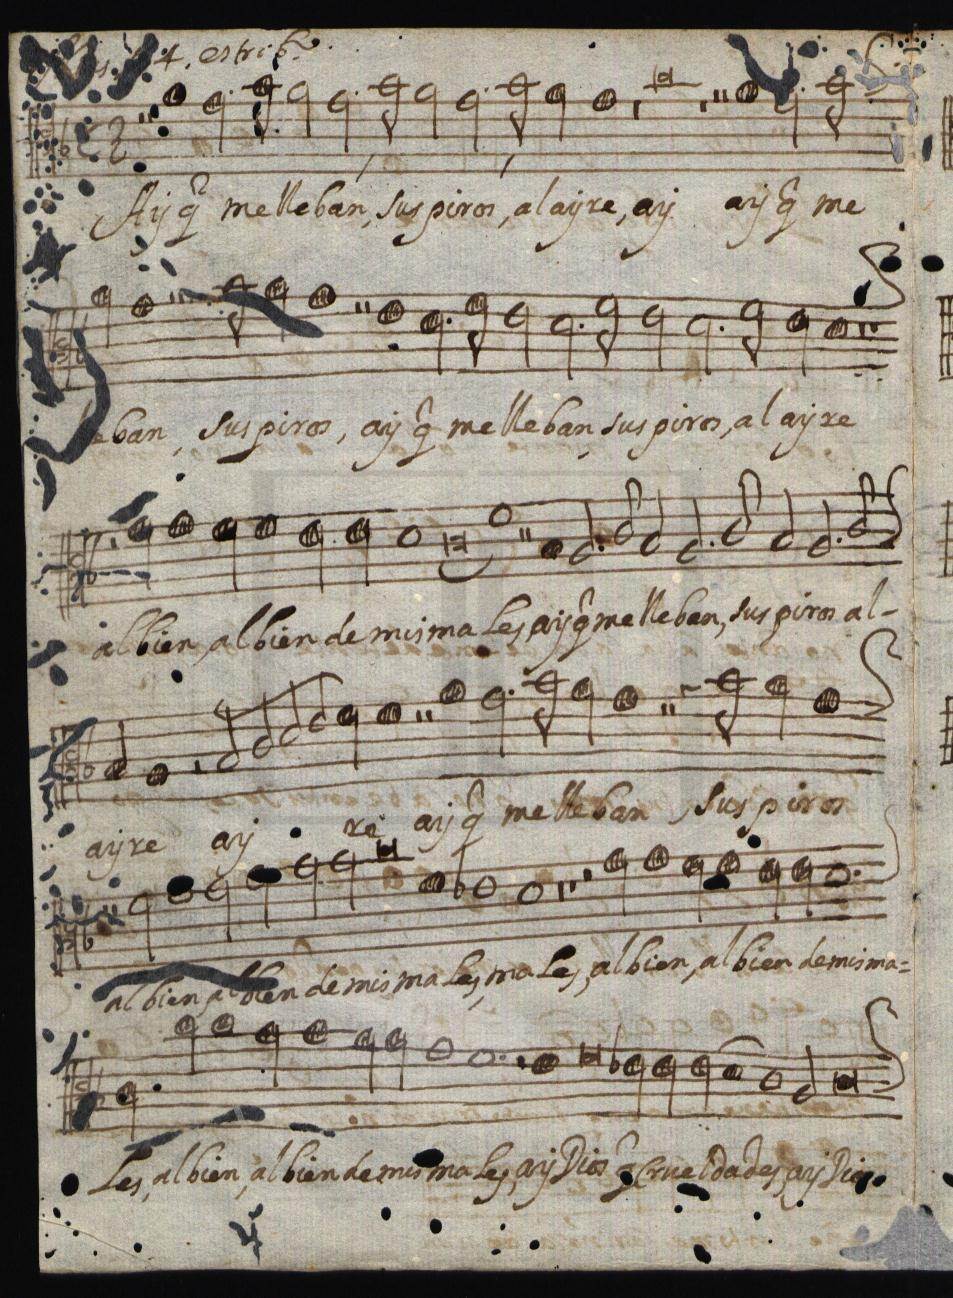 4. estribo
Ay q̃ me lleban, suspiros, al ayre, ay ay q̃ me
eban, suspiros, ay q̃ me lleban, suspiros, al ayre
al bien, al bien de mis ma les, ay q̃ me lleban, suspiros al-
ayre ay re ay q̃ me lleban, suspiros
al bien, al bien de mis ma les, ma les, al bien, al bien de mis ma=
les, al bien, al bien de mis ma les, ay Dios q̃ crueldades, ay Dios